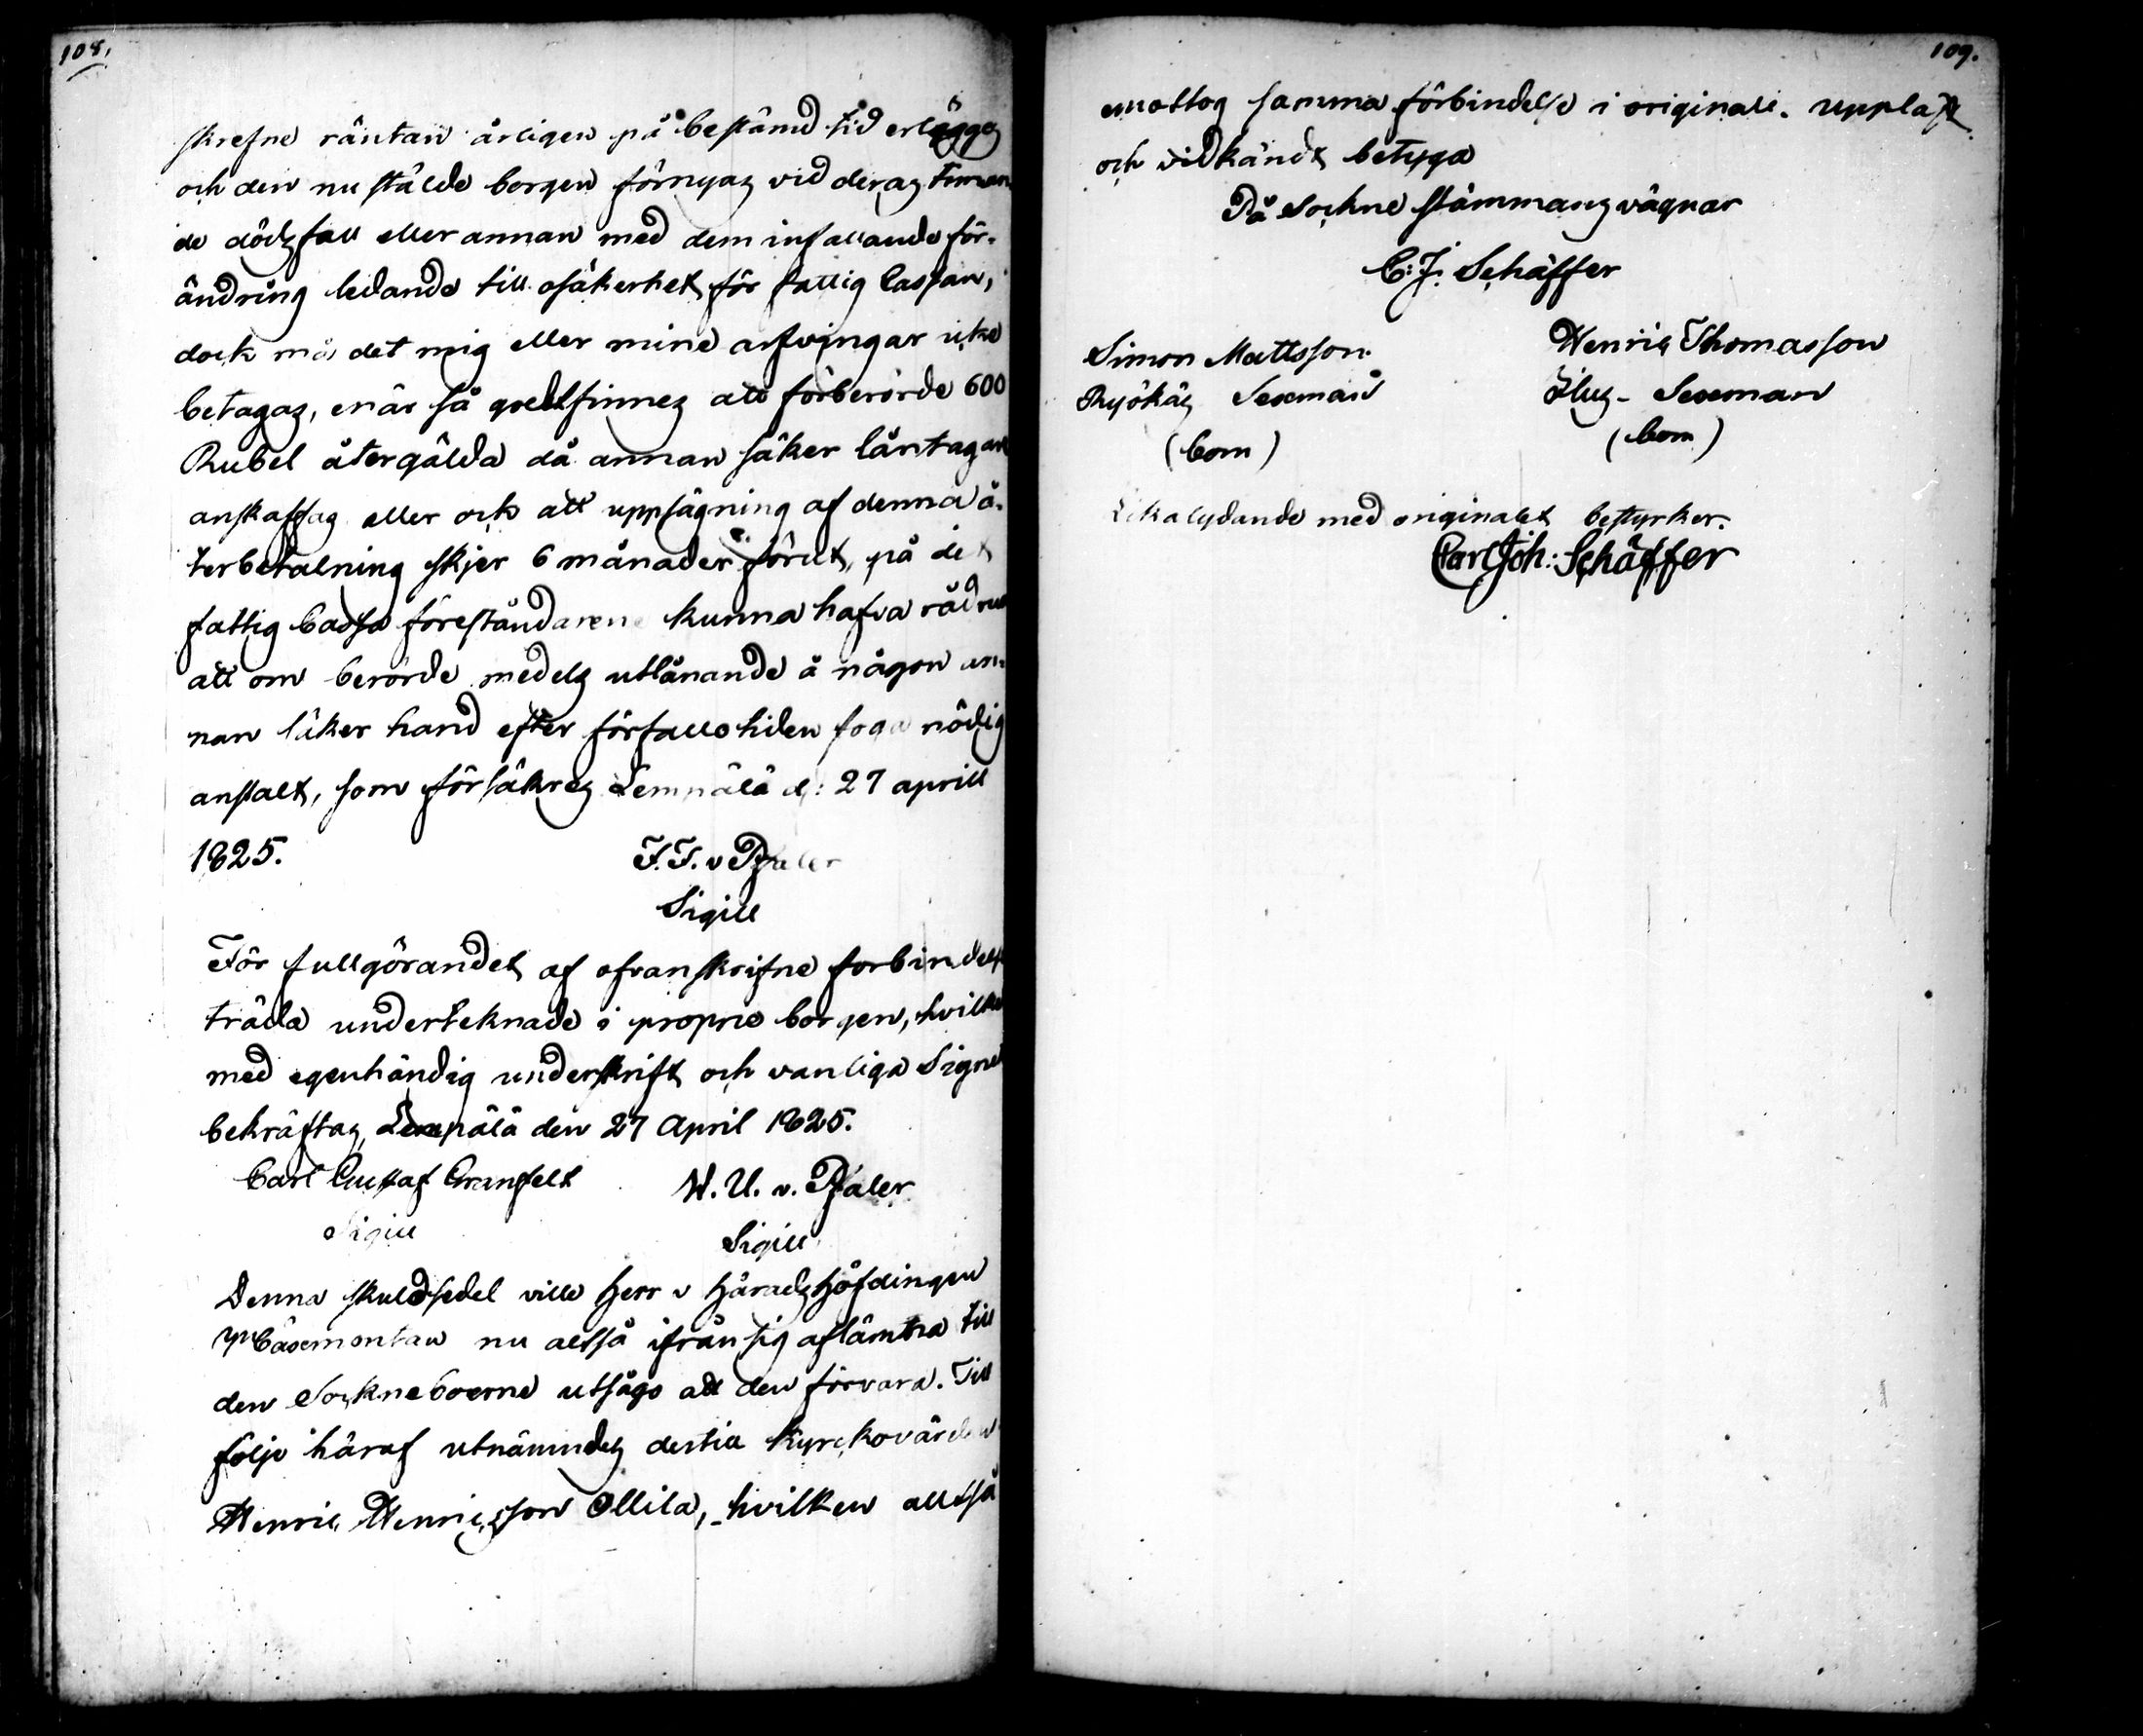 108.
skrefne räntan årligen på bestämd tid erlägges
och den nu stälde borgen förnyas vid deras timan
de dödsfall eller annan med dem infallande för-
ändring ledande till osäkerhet för fattig Cassan,
dock må det mig eller mine arfvingar icke
betagas, enär så godtfinnes att förberörde 600
Rubel återgälda då annan säker låntagare
anskaffas eller ock att uppsägning af denna å-
terbetalning skjer 6 månader förut, på det
fattig Cassa föreståndarene kunna hafva rådrum
att om berörde medels utlånande å någon an-
nan säker hand efter förfallotiden foga nödig
anstalt, som försäkres Lempälä d: 27 aprill
1825.
F. F. v Pfaler
Sigill
För fullgörandet af ofvanskrifne forbindelse
träda underteknade i proprie borgen, hvilket
med egenhändig underskrift och vanliga Signet
bekräftas, Lempälä den 27 April 1825.
Carl Gustaf Granfelt W. U. v. Pfaler
Sigill Sigill
Denna skuldsedel ville Herr v Häradshöfdingen
Cåsemontan nu altså ifrån sig aflämna till
den Sockneboerne utsågo att den förvara. Till
följe häraf utnämndes dertill Kyrckovärden
Henric Henricsson Ollila, hvilken alltså
109.
emottog samma förbindelse i originali. uppläst
och vidkändt betyga
På Sockne stämmans vägnar
C: J. Schäffer
Simon Mattsson Henric Thomasson
Ryökäs Sexman Sexman
(bom) (bom)
Lika lydande med originalet bestyrker.
Carl Joh: Schäffer